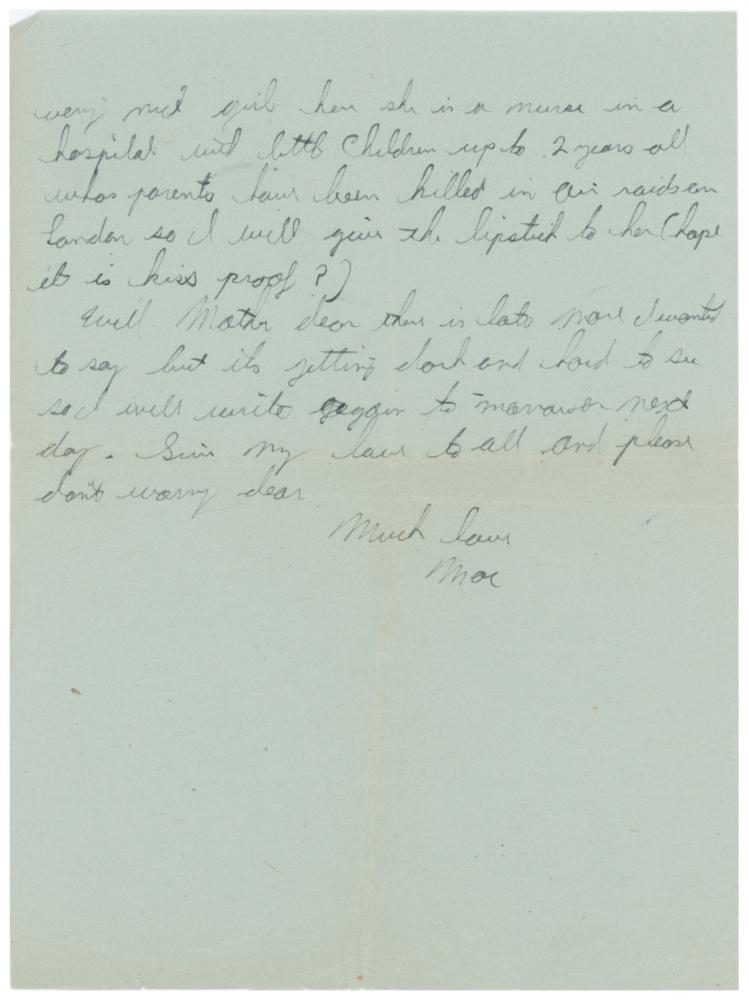 very nice girl here she is a nurse in a
hospital with little Children up to 2 years all
whos parents have been killed in air raids on
London so I will give the lipstick to her (hope
it is kiss proof?)
Well Mother dear there is lots more I wanted
to say but its getting dark and hard to see
so I will write again to-morrow or next
day. Give my love to all and please
don't worry dear
Much love
Mac